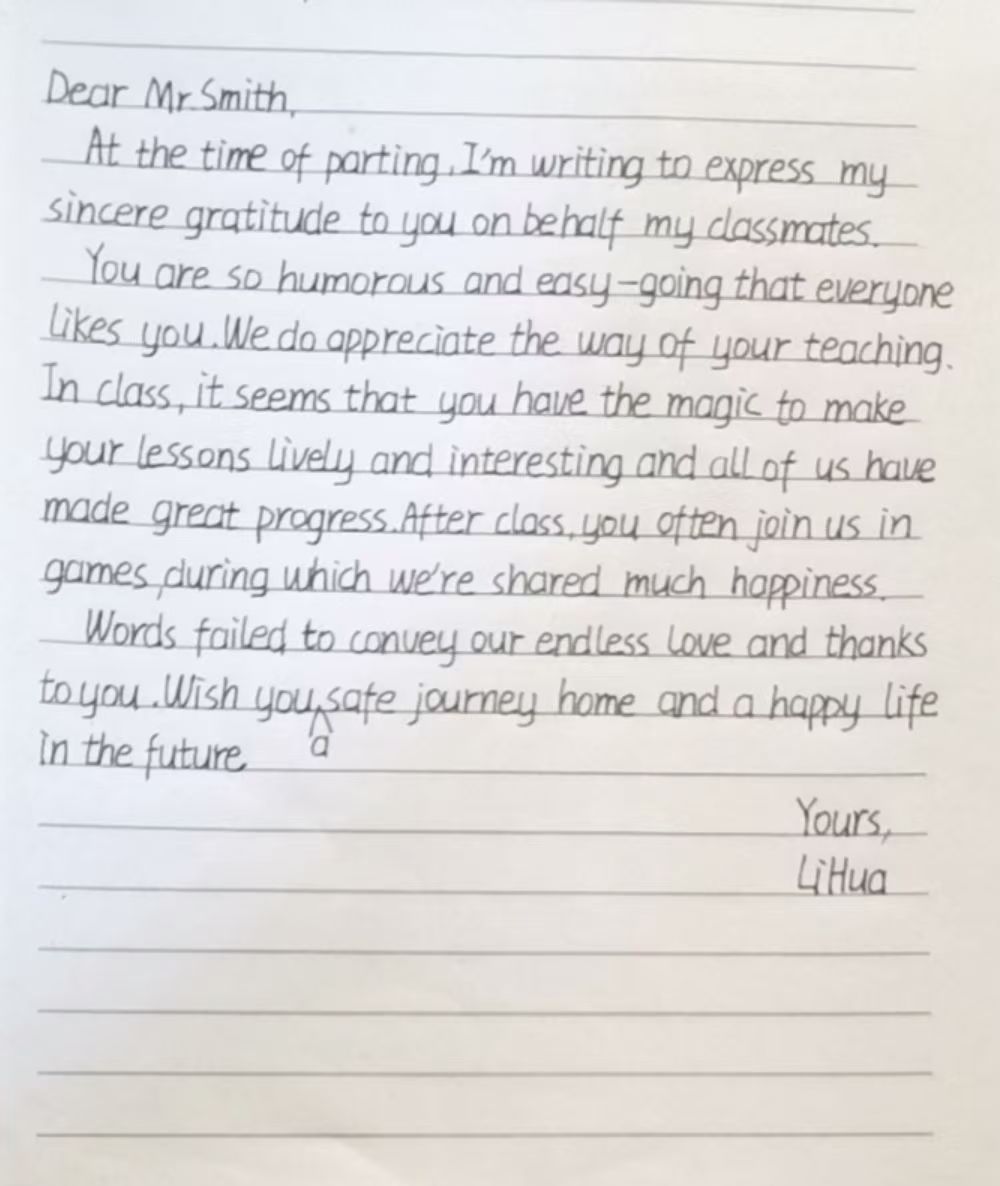 Dear Mr. Smith,
At the time of parting, I'm writing to express my
sincere gratitude to you on behalf my classmates.
You are so humorous and easy-going that everyone
likes you. We do appreciate the way of your teaching.
In class, it seems that you have the magic to make
your lessons lively and interesting and all of us have
made great progress. After class, you often join us in
games, during which we're shared much happiness.
Words failed to convey our endless love and thanks
to you. Wish you a safe journey home and a happy life
in the future
Yours,
Li Hua